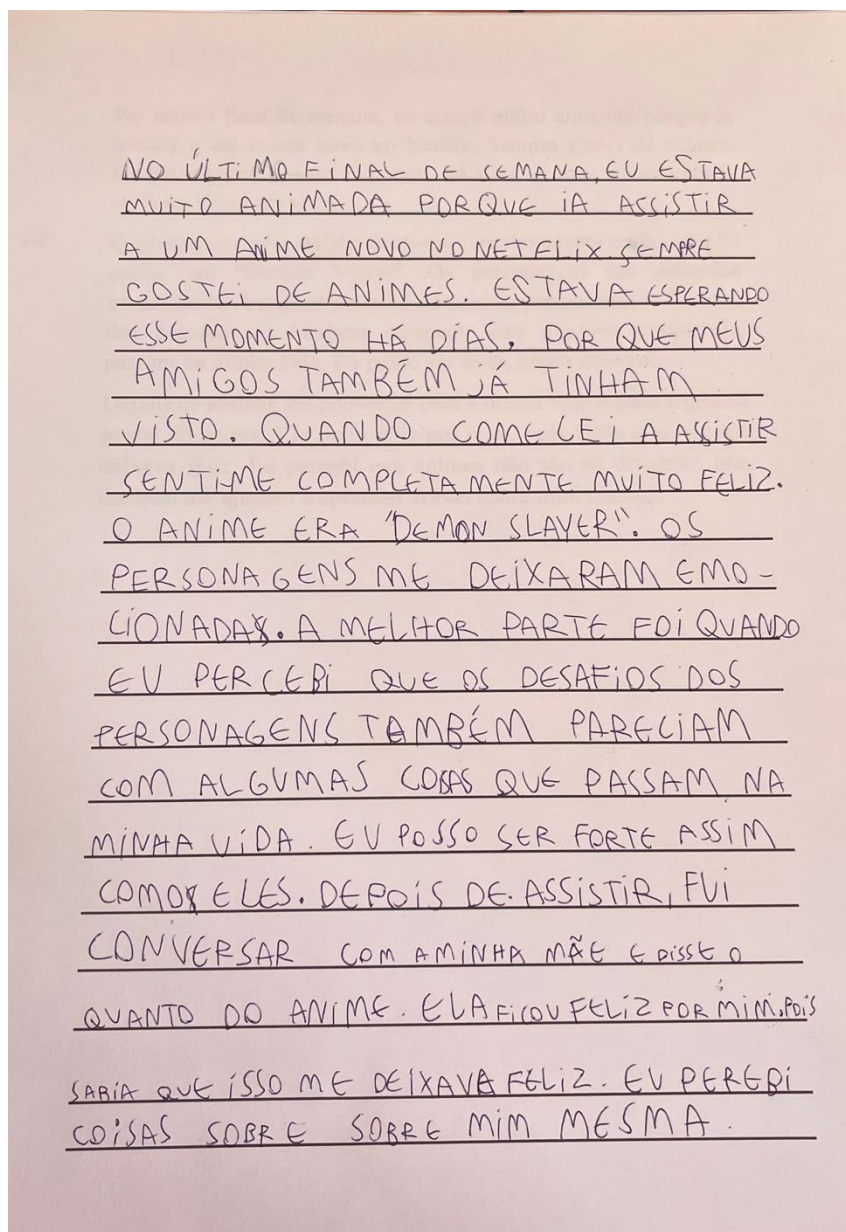 NO ÚLTIMO FINAL DE SEMANA, EU ESTAVA
MUITO ANIMADA PORQUE IA ASSISTIR
A UM ANIME NOVO NO NETFLIX. SEMPRE
GOSTEI DE ANIMES. ESTAVA ESPERANDO
ESSE MOMENTO HÁ DIAS, POR QUE MEUS
AMIGOS TAMBÉM JÁ TINHAM
VISTO. QUANDO COMECEI A ASSISTIR
SENTI-ME COMPLETAMENTE MUITO FELIZ.
O ANIME ERA "DEMON SLAYER". OS
PERSONAGENS ME DEIXARAM EMO-
CIONADA. A MELHOR PARTE FOI QUANDO
EU PERCEBI QUE OS DESAFIOS DOS
PERSONAGENS TAMBÉM PARECIAM
COM ALGUMAS COISAS QUE PASSAM NA
MINHA VIDA. EU POSSO SER FORTE ASSIM
COMO ELES. DEPOIS DE ASSISTIR, FUI
CONVERSAR COM A MINHA MÃE E DISSE O
QUANTO DO ANIME. ELA FICOU FELIZ POR MIM, POIS
SABIA QUE ISSO ME DEIXAVA FELIZ. EU PEREBI
COISAS SOBRE SOBRE MIM MESMA.